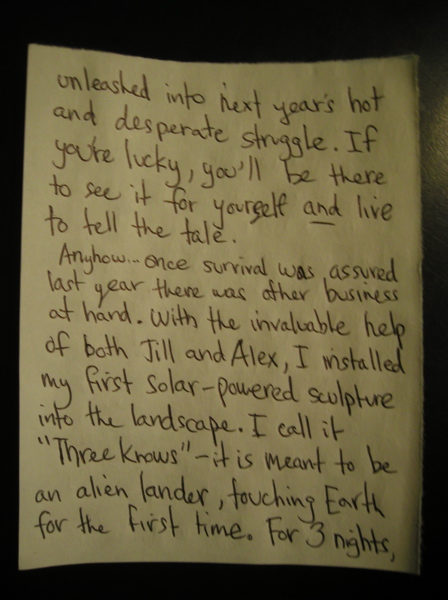 unleashed into next year's hot
and desperate struggle. If
you're lucky, you'll be there
to see it for yourself and live
to tell the tale.
Anyhow... once survival was assured
last year there was other business
at hand. With the invaluable help
of both Jill and Alex, I installed
my first solar-powered sculpture
into the landscape. I call it
"Three Knows" - it is meant to be
an alien lander, touching Earth
for the first time. For 3 nights,